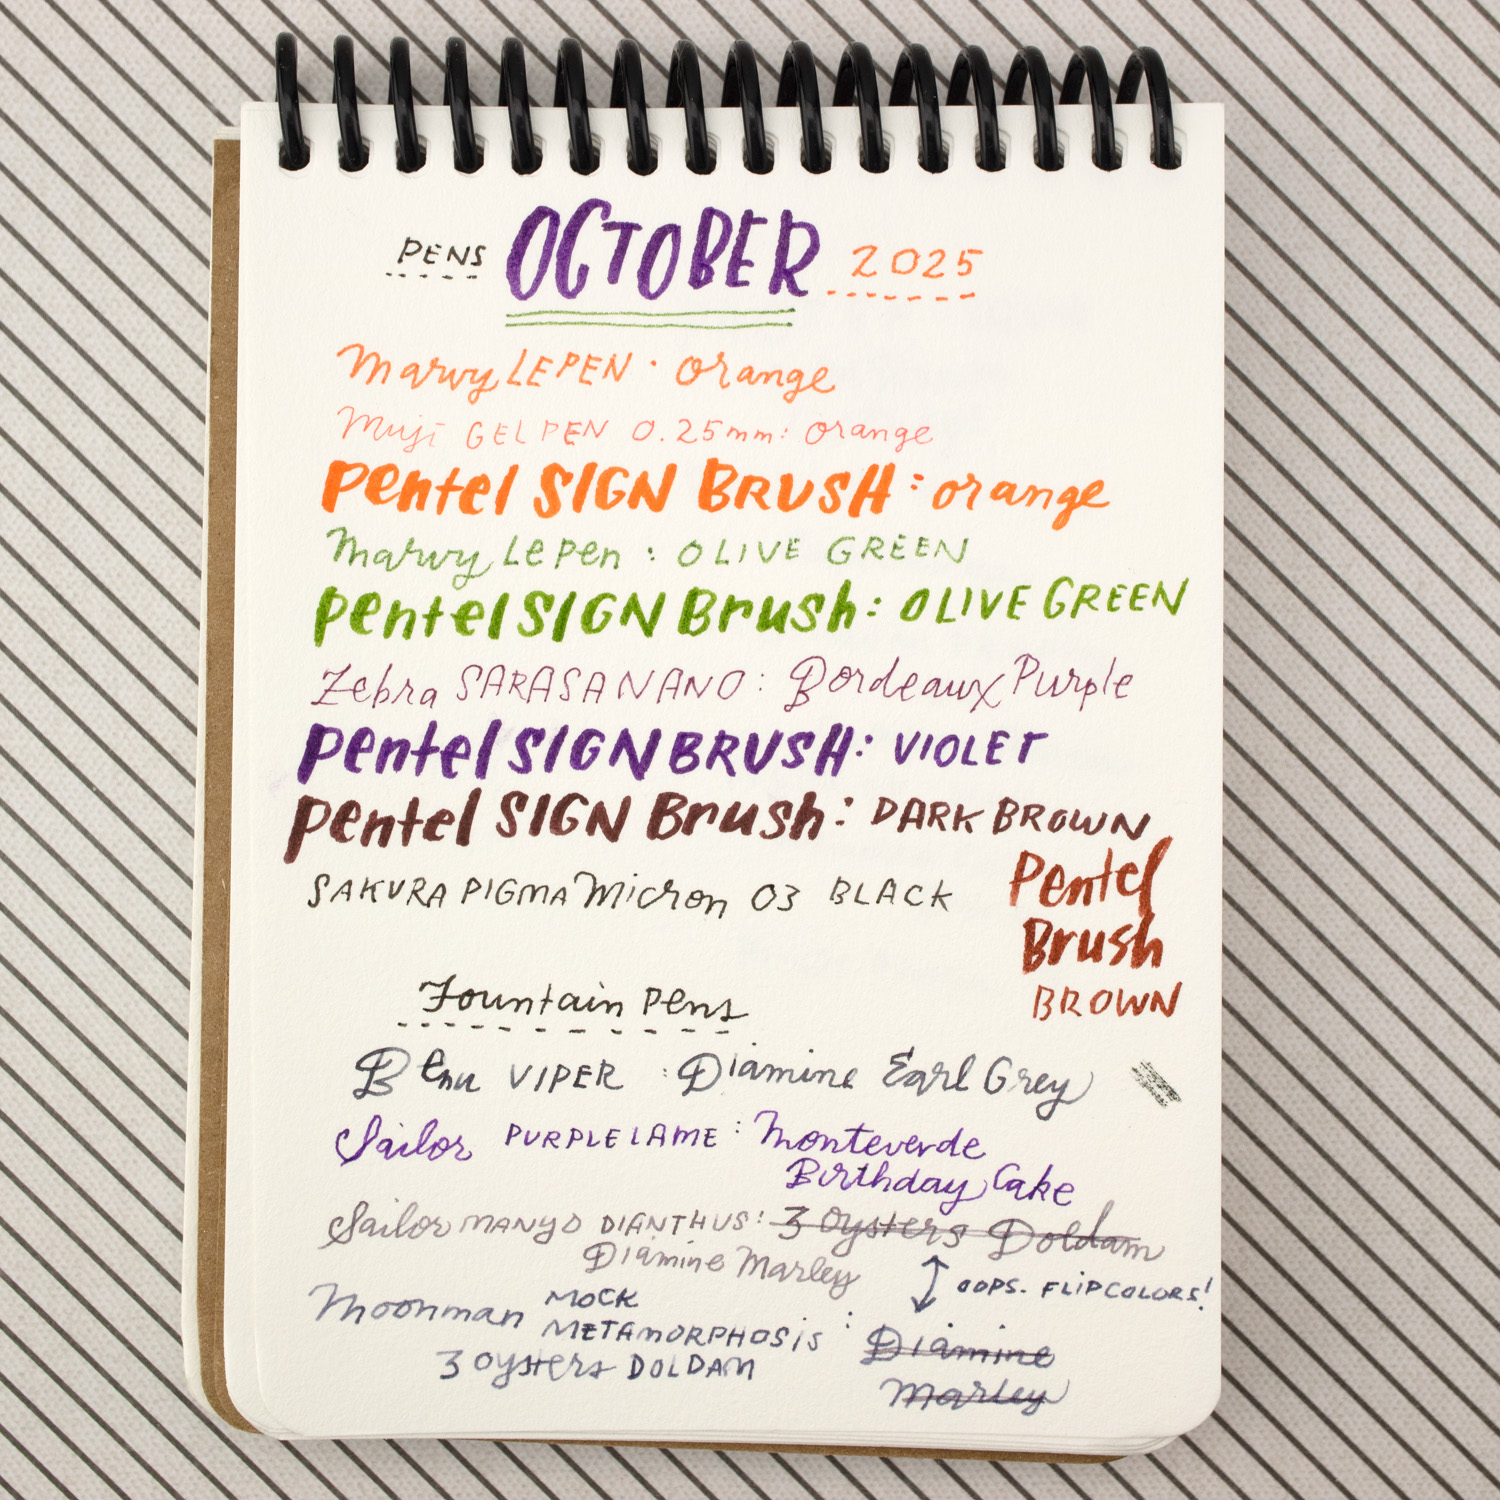 PENS OCTOBER 2025
Marvy LEPEN · Orange
Muji GEL PEN 0.25mm: Orange
Pentel SIGN BRUSH: orange
Marvy Le Pen: OLIVE GREEN
Pentel SIGN Brush: OLIVE GREEN
Zebra SARASA NANO: Bordeaux Purple
Pentel SIGN BRUSH: VIOLET
Pentel SIGN Brush: DARK BROWN
SAKURA PIGMA Micron 03 BLACK
Pentel
Brush
BROWN
Fountain Pens
Benu VIPER: Diamine Earl Grey
Sailor PURPLE LAME: Monteverde
Birthday Cake
Sailor MANYO DIANTHUS: 3 Oysters Doldam
Diamine Marley
OOPS. FLIP COLORS!
Moonman MOCK
METAMORPHOSIS:
Diamine
Marley
3 oysters DOLDAM